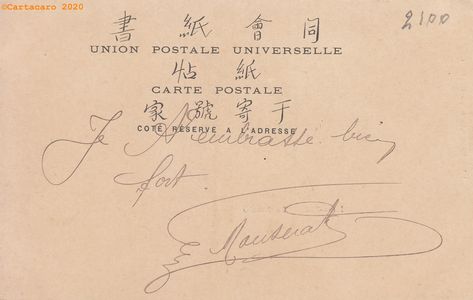 ©Cartacaro 2020
2100
書 紙 會 同
UNION POSTALE UNIVERSELLE
帖 紙
CARTE POSTALE
家 號 寄 于
COTÉ RÉSERVÉ A L'ADRESSE
Je t'embrasse bien
fort